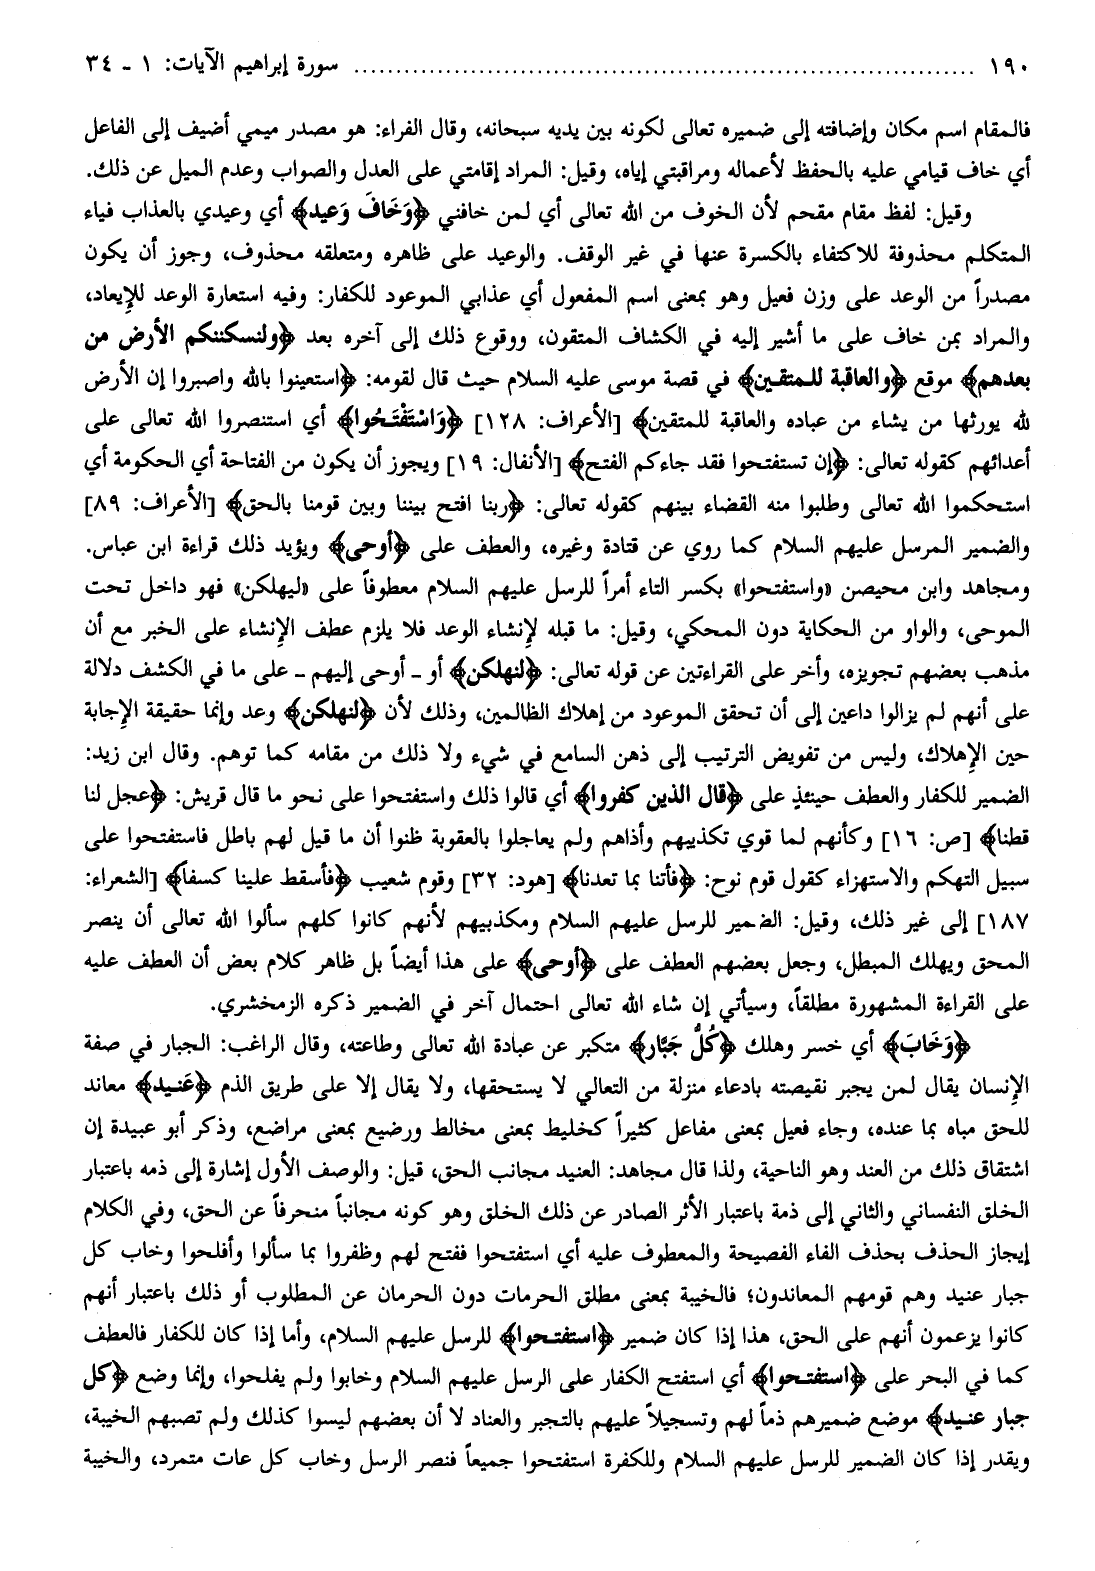 ١٩٠ ........................................................................... سورة إبراهيم الآيات: ١ ـ ٣٤
فالمقام اسم مكان وإضافته إلى ضميره تعالى لكونه بين يديه سبحانه، وقال الفراء: هو مصدر ميمي أضيف إلى الفاعل
أي خاف قيامي عليه بالحفظ لأعماله ومراقبتي إياه، وقيل: المراد إقامتي على العدل والصواب وعدم الميل عن ذلك.
وقيل: لفظ مقام مقحم لأن الخوف من الله تعالى أي لمن خافني ﴿وَخَافَ وَعيد﴾ أي وعيدي بالعذاب فياء
المتكلم محذوفة للاكتفاء بالكسرة عنها في غير الوقف. والوعيد على ظاهره ومتعلقه محذوف، وجوز أن يكون
مصدراً من الوعد على وزن فعيل وهو بمعنى اسم المفعول أي عذابي الموعود للكفار: وفيه استعارة الوعد للإيعاد،
والمراد بمن خاف على ما أشير إليه في الكشاف المتقون، ووقوع ذلك إلى آخره بعد ﴿ولنسكننكم الأرض من
بعدهم﴾ موقع ﴿والعاقبة للمتقين﴾ في قصة موسى عليه السلام حيث قال لقومه: ﴿استعينوا بالله واصبروا إن الأرض
لله يورثها من يشاء من عباده والعاقبة للمتقين﴾ [الأعراف: ١٢٨] ﴿وَاسْتَفْتَحُوا﴾ أي استنصروا الله تعالى على
أعدائهم كقوله تعالى: ﴿إن تستفتحوا فقد جاءكم الفتح﴾ [الأنفال: ١٩] ويجوز أن يكون من الفتاحة أي الحكومة أي
استحكموا الله تعالى وطلبوا منه القضاء بينهم كقوله تعالى: ﴿ربنا افتح بيننا وبين قومنا بالحق﴾ [الأعراف: ٨٩]
والضمير المرسل عليهم السلام كما روي عن قتادة وغيره، والعطف على ﴿أوحى﴾ ويؤيد ذلك قراءة ابن عباس.
ومجاهد وابن محيصن «واستفتحوا» بكسر التاء أمراً للرسل عليهم السلام معطوفاً على «ليهلكن» فهو داخل تحت
الموحى، والواو من الحكاية دون المحكي، وقيل: ما قبله لإنشاء الوعد فلا يلزم عطف الإنشاء على الخبر مع أن
مذهب بعضهم تجويزه، وأخر على القراءتين عن قوله تعالى: ﴿لنهلكن﴾ أو ـ أوحى إليهم ـ على ما في الكشف دلالة
على أنهم لم يزالوا داعين إلى أن تحقق الموعود من إهلاك الظالمين، وذلك لأن ﴿لنهلكن﴾ وعد وإنما حقيقة الإجابة
حين الإهلاك، وليس من تفويض الترتيب إلى ذهن السامع في شيء ولا ذلك من مقامه كما توهم. وقال ابن زيد:
الضمير للكفار والعطف حينئذٍ على ﴿قال الذين كفروا﴾ أي قالوا ذلك واستفتحوا على نحو ما قال قريش: ﴿عجل لنا
قطنا﴾ [ص: ١٦] وكأنهم لما قوي تكذيبهم وأذاهم ولم يعاجلوا بالعقوبة ظنوا أن ما قيل لهم باطل فاستفتحوا على
سبيل التهكم والاستهزاء كقول قوم نوح: ﴿فأتنا بما تعدنا﴾ [هود: ٣٢] وقوم شعيب ﴿فأسقط علينا كسفاً﴾ [الشعراء:
١٨٧] إلى غير ذلك، وقيل: الضمير للرسل عليهم السلام ومكذبيهم لأنهم كانوا كلهم سألوا الله تعالى أن ينصر
المحق ويهلك المبطل، وجعل بعضهم العطف على ﴿أوحى﴾ على هذا أيضاً بل ظاهر كلام بعض أن العطف عليه
على القراءة المشهورة مطلقاً، وسيأتي إن شاء الله تعالى احتمال آخر في الضمير ذكره الزمخشري.
﴿وَخَابَ﴾ أي خسر وهلك ﴿كُلُّ جَبَّار﴾ متكبر عن عبادة الله تعالى وطاعته، وقال الراغب: الجبار في صفة
الإنسان يقال لمن يجبر نقيصته بادعاء منزلة من التعالي لا يستحقها، ولا يقال إلا على طريق الذم ﴿عَنيد﴾ معاند
للحق مباه بما عنده، وجاء فعيل بمعنى مفاعل كثيراً كخليط بمعنى مخالط ورضيع بمعنى مراضع، وذكر أبو عبيدة إن
اشتقاق ذلك من العند وهو الناحية، ولذا قال مجاهد: العنيد مجانب الحق، قيل: والوصف الأول إشارة إلى ذمه باعتبار
الخلق النفساني والثاني إلى ذمة باعتبار الأثر الصادر عن ذلك الخلق وهو كونه مجانباً منحرفاً عن الحق، وفي الكلام
إيجاز الحذف بحذف الفاء الفصيحة والمعطوف عليه أي استفتحوا ففتح لهم وظفروا بما سألوا وأفلحوا وخاب كل
جبار عنيد وهم قومهم المعاندون؛ فالخيبة بمعنى مطلق الحرمات دون الحرمان عن المطلوب أو ذلك باعتبار أنهم
كانوا يزعمون أنهم على الحق، هذا إذا كان ضمير ﴿استفتحوا﴾ للرسل عليهم السلام، وأما إذا كان للكفار فالعطف
كما في البحر على ﴿استفتحوا﴾ أي استفتح الكفار على الرسل عليهم السلام وخابوا ولم يفلحوا، وإنما وضع ﴿كل
جبار عنيد﴾ موضع ضميرهم ذماً لهم وتسجيلاً عليهم بالتجبر والعناد لا أن بعضهم ليسوا كذلك ولم تصبهم الخيبة،
ويقدر إذا كان الضمير للرسل عليهم السلام وللكفرة استفتحوا جميعاً فنصر الرسل وخاب كل عات متمرد، والخيبة